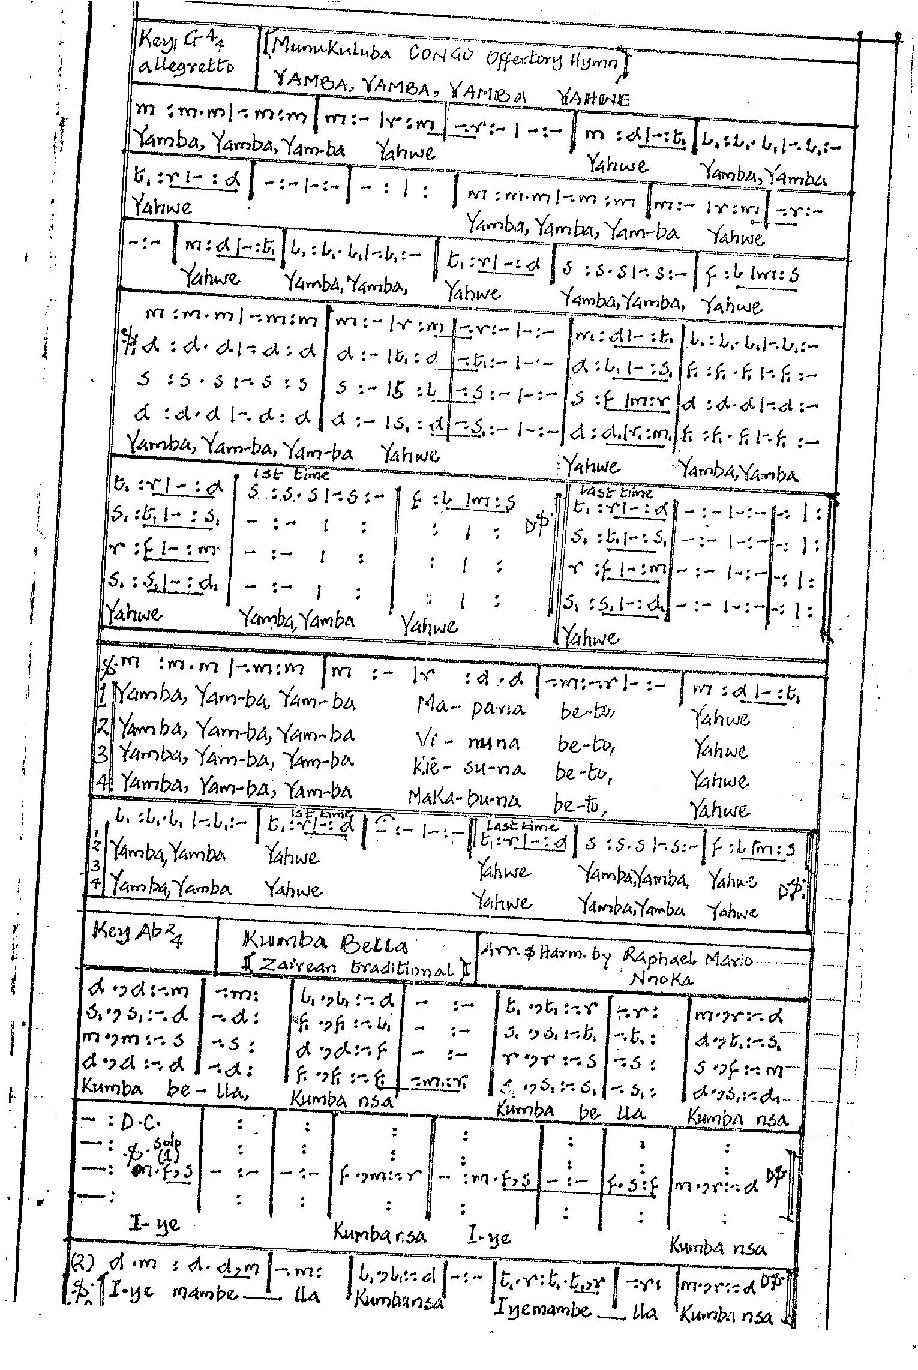 Key, G 4/4 [Munukuluba CONGO Offertory Hymn]
allegretto YAMBA, YAMBA, YAMBA YAHWE
m :m.m|-.m:m|m:- |r:m|-:r:-|-:-|m :d|-:t₁|l₁:l₁.l₁|-.l₁:-
Yamba, Yamba, Yam-ba Yahwe Yahwe Yamba, Yamba
t₁:r|-:d|-:-|-:-|-:|: |m :m.m|-.m:m|m:- |r:m|-:r:-
Yahwe Yamba, Yamba, Yam-ba Yahwe
-:-|m:d|-:t₁|l₁:l₁.l₁|-.l₁:-|t₁:r|-:d|s :s.s|-.s:-|f:l|m:s
Yahwe Yamba, Yamba, Yahwe Yamba, Yamba, Yahwe
m :m.m|-.m:m|m:-|r:m|-:r:-|-:-|m:d|-:t₁|l₁:l₁.l₁|-.l₁:-
d :d.d|-.d:d|d:-|t₁:d|-:t₁:-|-:-|d:l₁|-:s₁|f₁:f₁.f₁|-.f₁:-
s :s.s|-.s:s|s:-|s:l|-:s:-|-:-|s:f|m:r|d:d.d|-.d:-
d :d.d|-.d:d|d:-|s₁:d|-:s₁:-|-:-|d:d|r:m|f₁:f₁.f₁|-.f₁:-
Yamba, Yam-ba, Yam-ba Yahwe Yahwe Yamba, Yamba
1st time Last time
t₁:r|-:d|s :s.s|-.s:-|f:l|m:s|t₁:r|-:d|-:-|-:-|-:|:
s₁:t₁|-:s₁|-:-|: |:|: D.S.|s₁:t₁|-:s₁|-:-|-:-|-:|:
r :f|-:m|-:-|: |:|: |r :f|-:m|-:-|-:-|-:|:
s₁:s₁|-:d₁|-:-|: |:|: |s₁:s₁|-:d₁|-:-|-:-|-:|:
Yahwe Yamba, Yamba Yahwe Yahwe
m :m.m|-.m:m|m :-|r :d.d|-.m:-.r|-:-|m:d|-:t₁
1 Yamba, Yam-ba, Yam-ba Ma-pana be-to, Yahwe
2 Yamba, Yam-ba, Yam-ba Vi-nuna be-to, Yahwe
3 Yamba, Yam-ba, Yam-ba Kie-su-na be-to, Yahwe
4 Yamba, Yam-ba, Yam-ba Maka-bu-na be-to, Yahwe
1st time Last time
l₁:l₁.l₁|-.l₁:-|t₁:r|-:d|-:-|-:-|t₁:r|-:d|s :s.s|-.s:-|f:l|m:s
1 2 Yamba, Yamba Yahwe Yahwe Yamba, Yamba, Yahwe
3 4 Yamba, Yamba Yahwe Yahwe Yamba, Yamba Yahwe D.S.
Key Ab 2/4 Kumba Bella Arr. & Harm. by Raphael Mario
[Zairean traditional] Nnoka
d.,d:-.m|-.m:|l₁.,l₁:-.d|-:-|t₁.,t₁:-.r|-.r:|m.,r:-.d
s₁.,s₁:-.d|-.d:|f₁.,f₁:-.l₁|-:-|s₁.,s₁:-.t₁|-.t₁:|d.,t₁:-.s₁
m.,m:-.s|-.s:|d.,d:-.f|-:-|r.,r:-.s|-.s:|s.,f:-.m
d.,d:-.d|-.d:|f₁.,f₁:-.f|-.m:r|s₁.,s₁:-.s₁|-.s₁:|d.,s₁:-.d₁
Kumba be-lla, Kumba nsa Kumba be lla Kumba nsa
-: D.C.
-: Solo (1)
-: m.f,s|-:-|-:-|f.,m:-.r|-:m.f,s|-:-|f.s:f|m.,r:-.d D.S.
-:
I-ye Kumba nsa I-ye Kumba nsa
(2) d.m :d.d,m|-.m:|l₁.,l₁:-.d|-:-|t₁.r:t₁.t₁,r|-.r:|m.,r:-.d D.S.
I-ye mambe__lla Kumbansa Iyemambe__lla Kumba nsa